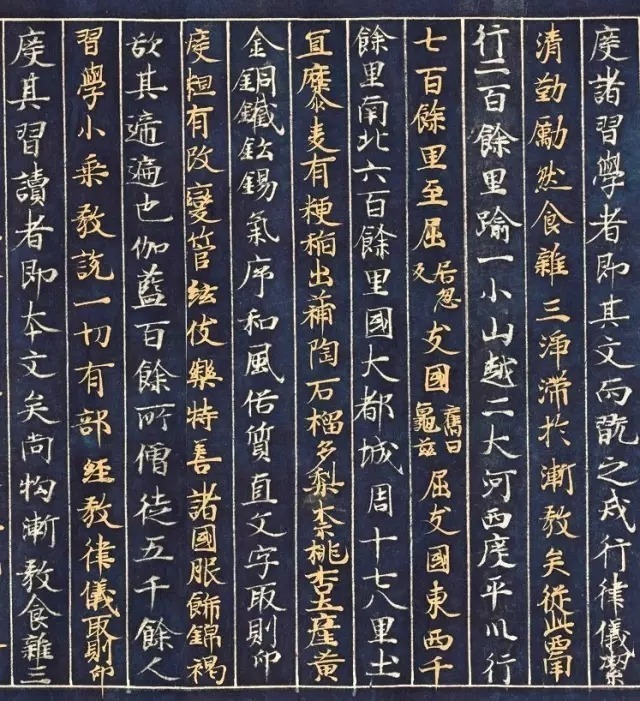 度諸習學者即其文而翫之戒行律儀潔
清勤勵然食雜三淨滯於漸教矣從此西南
行二百餘里踰一小山越二大河西度平川行
七百餘里至屈居忽反支國舊曰龜茲屈支國東西千
餘里南北六百餘里國大都城周十七八里土
宜穈麦有粳稻出蒲陶石榴多梨柰桃杏土產黃
金銅鐵鈆錫氣序和風俗質直文字取則印
度粗有改變管絃伎樂特善諸國服飾錦褐
故其遍也伽藍百餘所僧徒五千餘人
習學小乘教說一切有部經教律儀取則印
度其習讀者即本文矣尚拘漸教食雜三